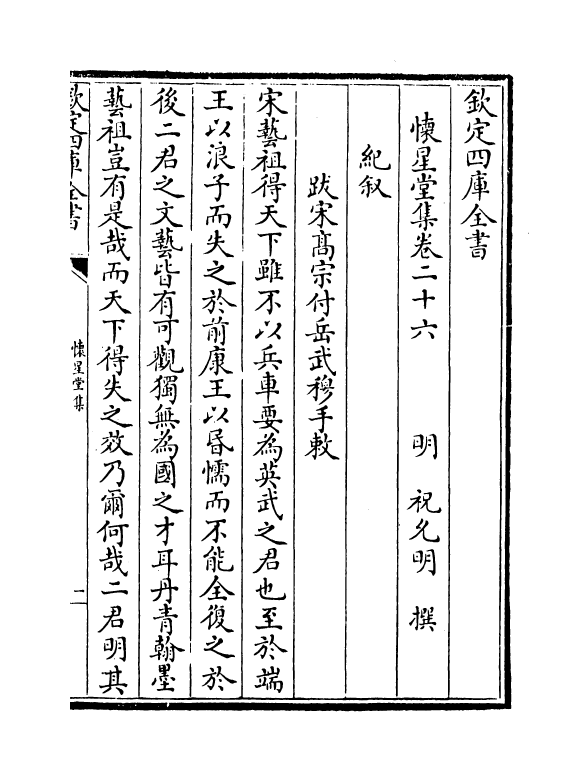 欽定四庫全書
懷星堂集卷二十六　明　祝允明　撰
紀叙
跋宋髙宗付岳武穆手敕
宋藝祖得天下雖不以兵車要為英武之君也至於端
王以浪子而失之於前康王以昬懦而不能全復之於
後二君之文藝皆有可觀獨無為國之才耳丹青翰墨
藝祖豈有是哉而天下得失之效乃爾何哉二君明其
欽定四庫全書
懷星堂集
二